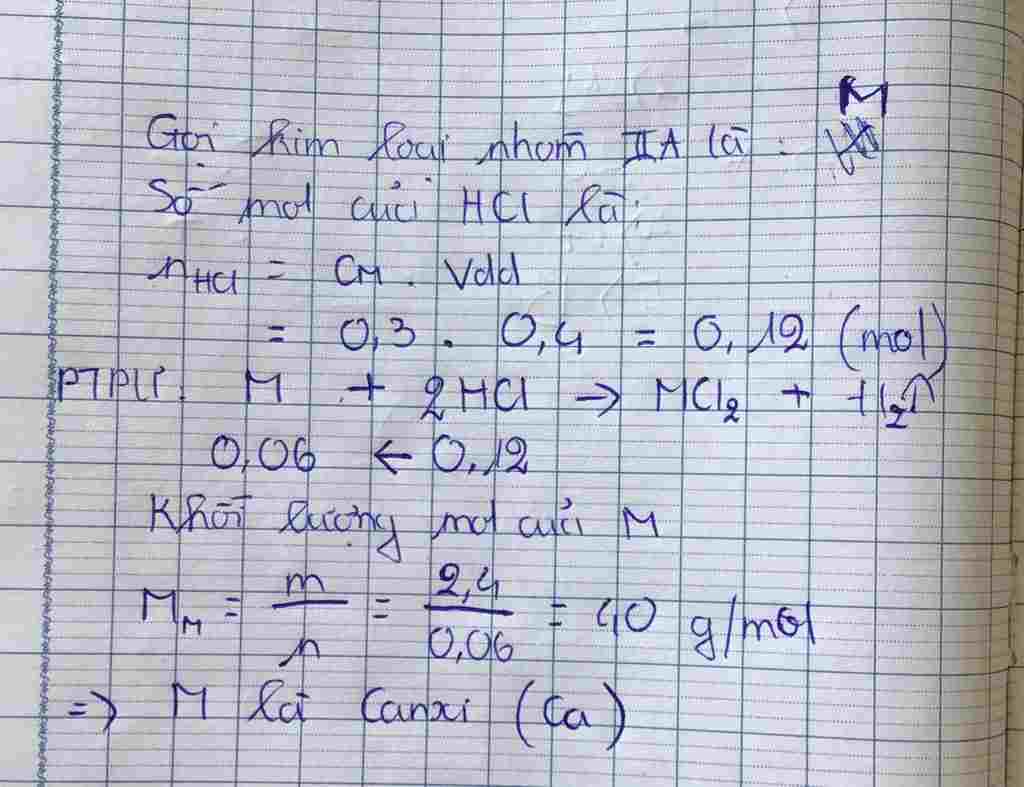 M
Gọi kim loại nhóm IIA là :
Số mol của HCl là:
nHCl = CM . Vdd
= 0,3 . 0,4 = 0,12 (mol)
PTPƯ: M + 2HCl → MCl₂ + H₂↑
0,06 ← 0,12
Khối lượng mol của M
MM = m/n = 2,4/0,06 = 40 g/mol
=> M là Canxi (Ca)